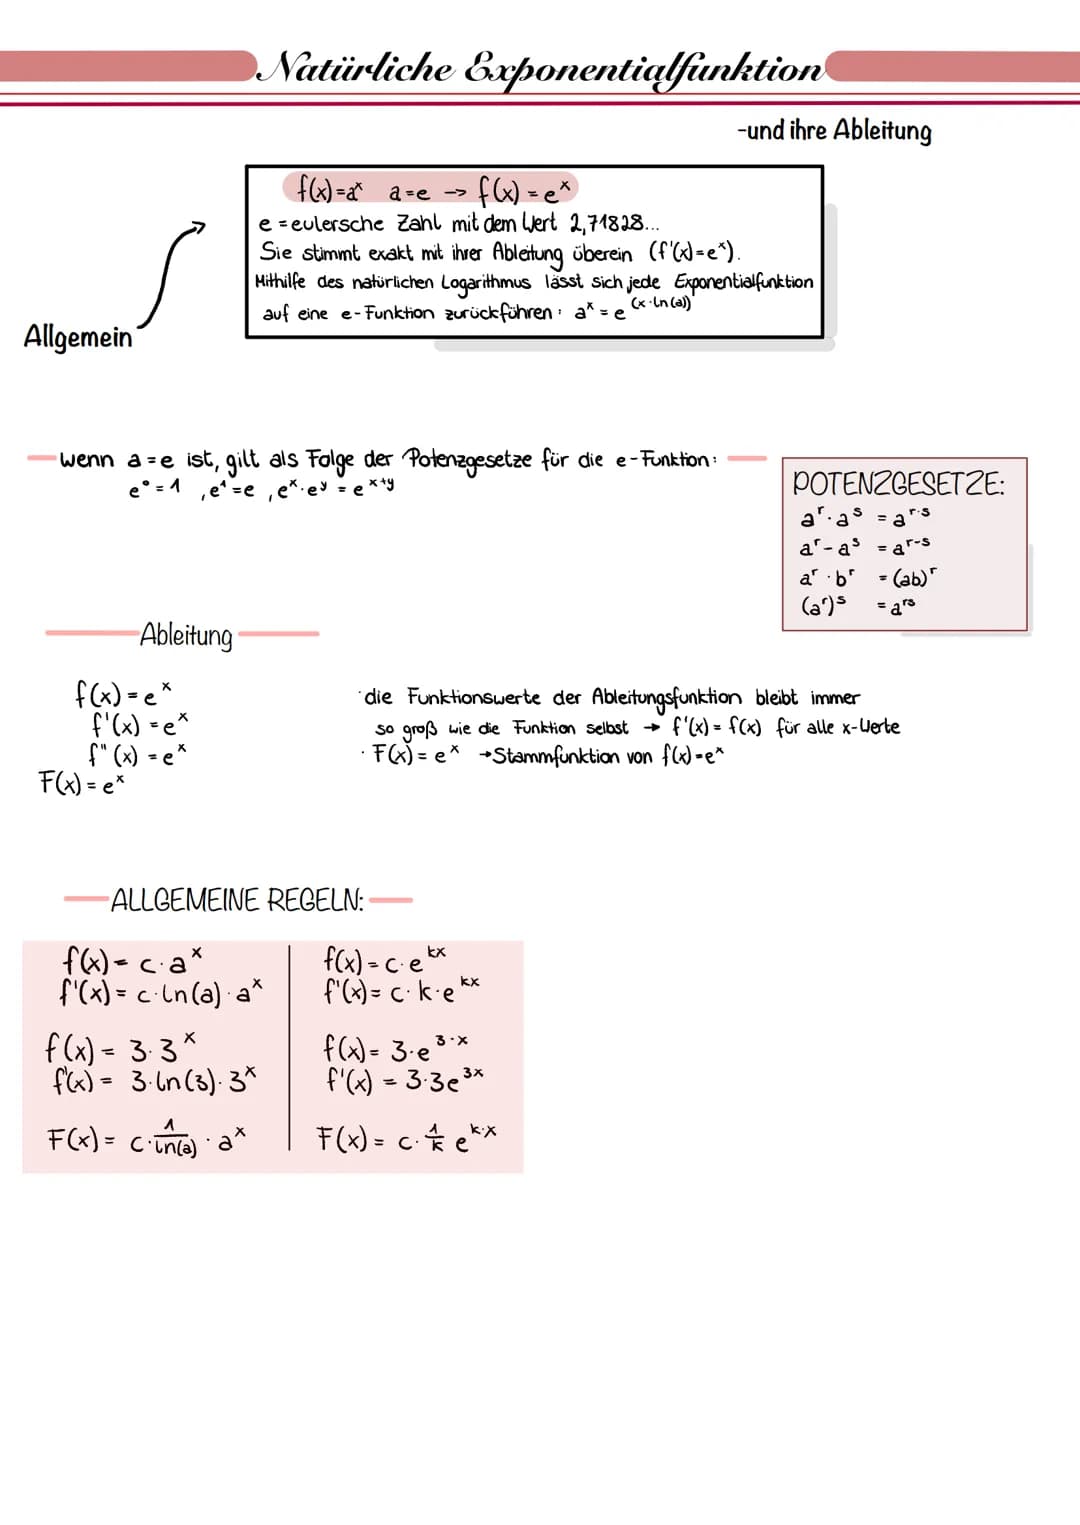 Natürliche Exponentialfunktion
-und ihre Ableitung
f(x)=aˣ a=e -> f(x)=eˣ
e = eulersche Zahl mit dem Wert 2,71828...
Sie stimmt exakt mit ihrer Ableitung überein (f'(x)=eˣ).
Mithilfe des natürlichen Logarithmus lässt sich jede Exponentialfunktion
auf eine e-Funktion zurückführen: aˣ = e^(x·ln(a))
Allgemein
wenn a=e ist, gilt als Folge der Potenzgesetze für die e-Funktion:
e⁰=1, e¹=e, eˣ·eʸ = eˣ⁺ʸ
POTENZGESETZE:
aʳ·aˢ = a^r·s
aʳ-aˢ = aʳ⁻ˢ
aʳ·bʳ = (ab)ʳ
(aʳ)ˢ = aʳˢ
Ableitung
f(x)=eˣ
f'(x)=eˣ
f"(x)=eˣ
F(x)=eˣ
·die Funktionswerte der Ableitungsfunktion bleibt immer
so groß wie die Funktion selbst → f'(x)=f(x) für alle x-Werte
·F(x)=eˣ →Stammfunktion von f(x)=eˣ
ALLGEMEINE REGELN:
f(x)= c·aˣ
f'(x)= c·ln(a)·aˣ
f(x)= 3·3ˣ
f'(x)= 3·ln(3)·3ˣ
F(x)= c·1/ln(a)·aˣ
f(x)=c·e^kx
f'(x)=c·k·e^kx
f(x)= 3·e^3·x
f'(x) = 3·3e^3x
F(x)= c·1/k e^k·x